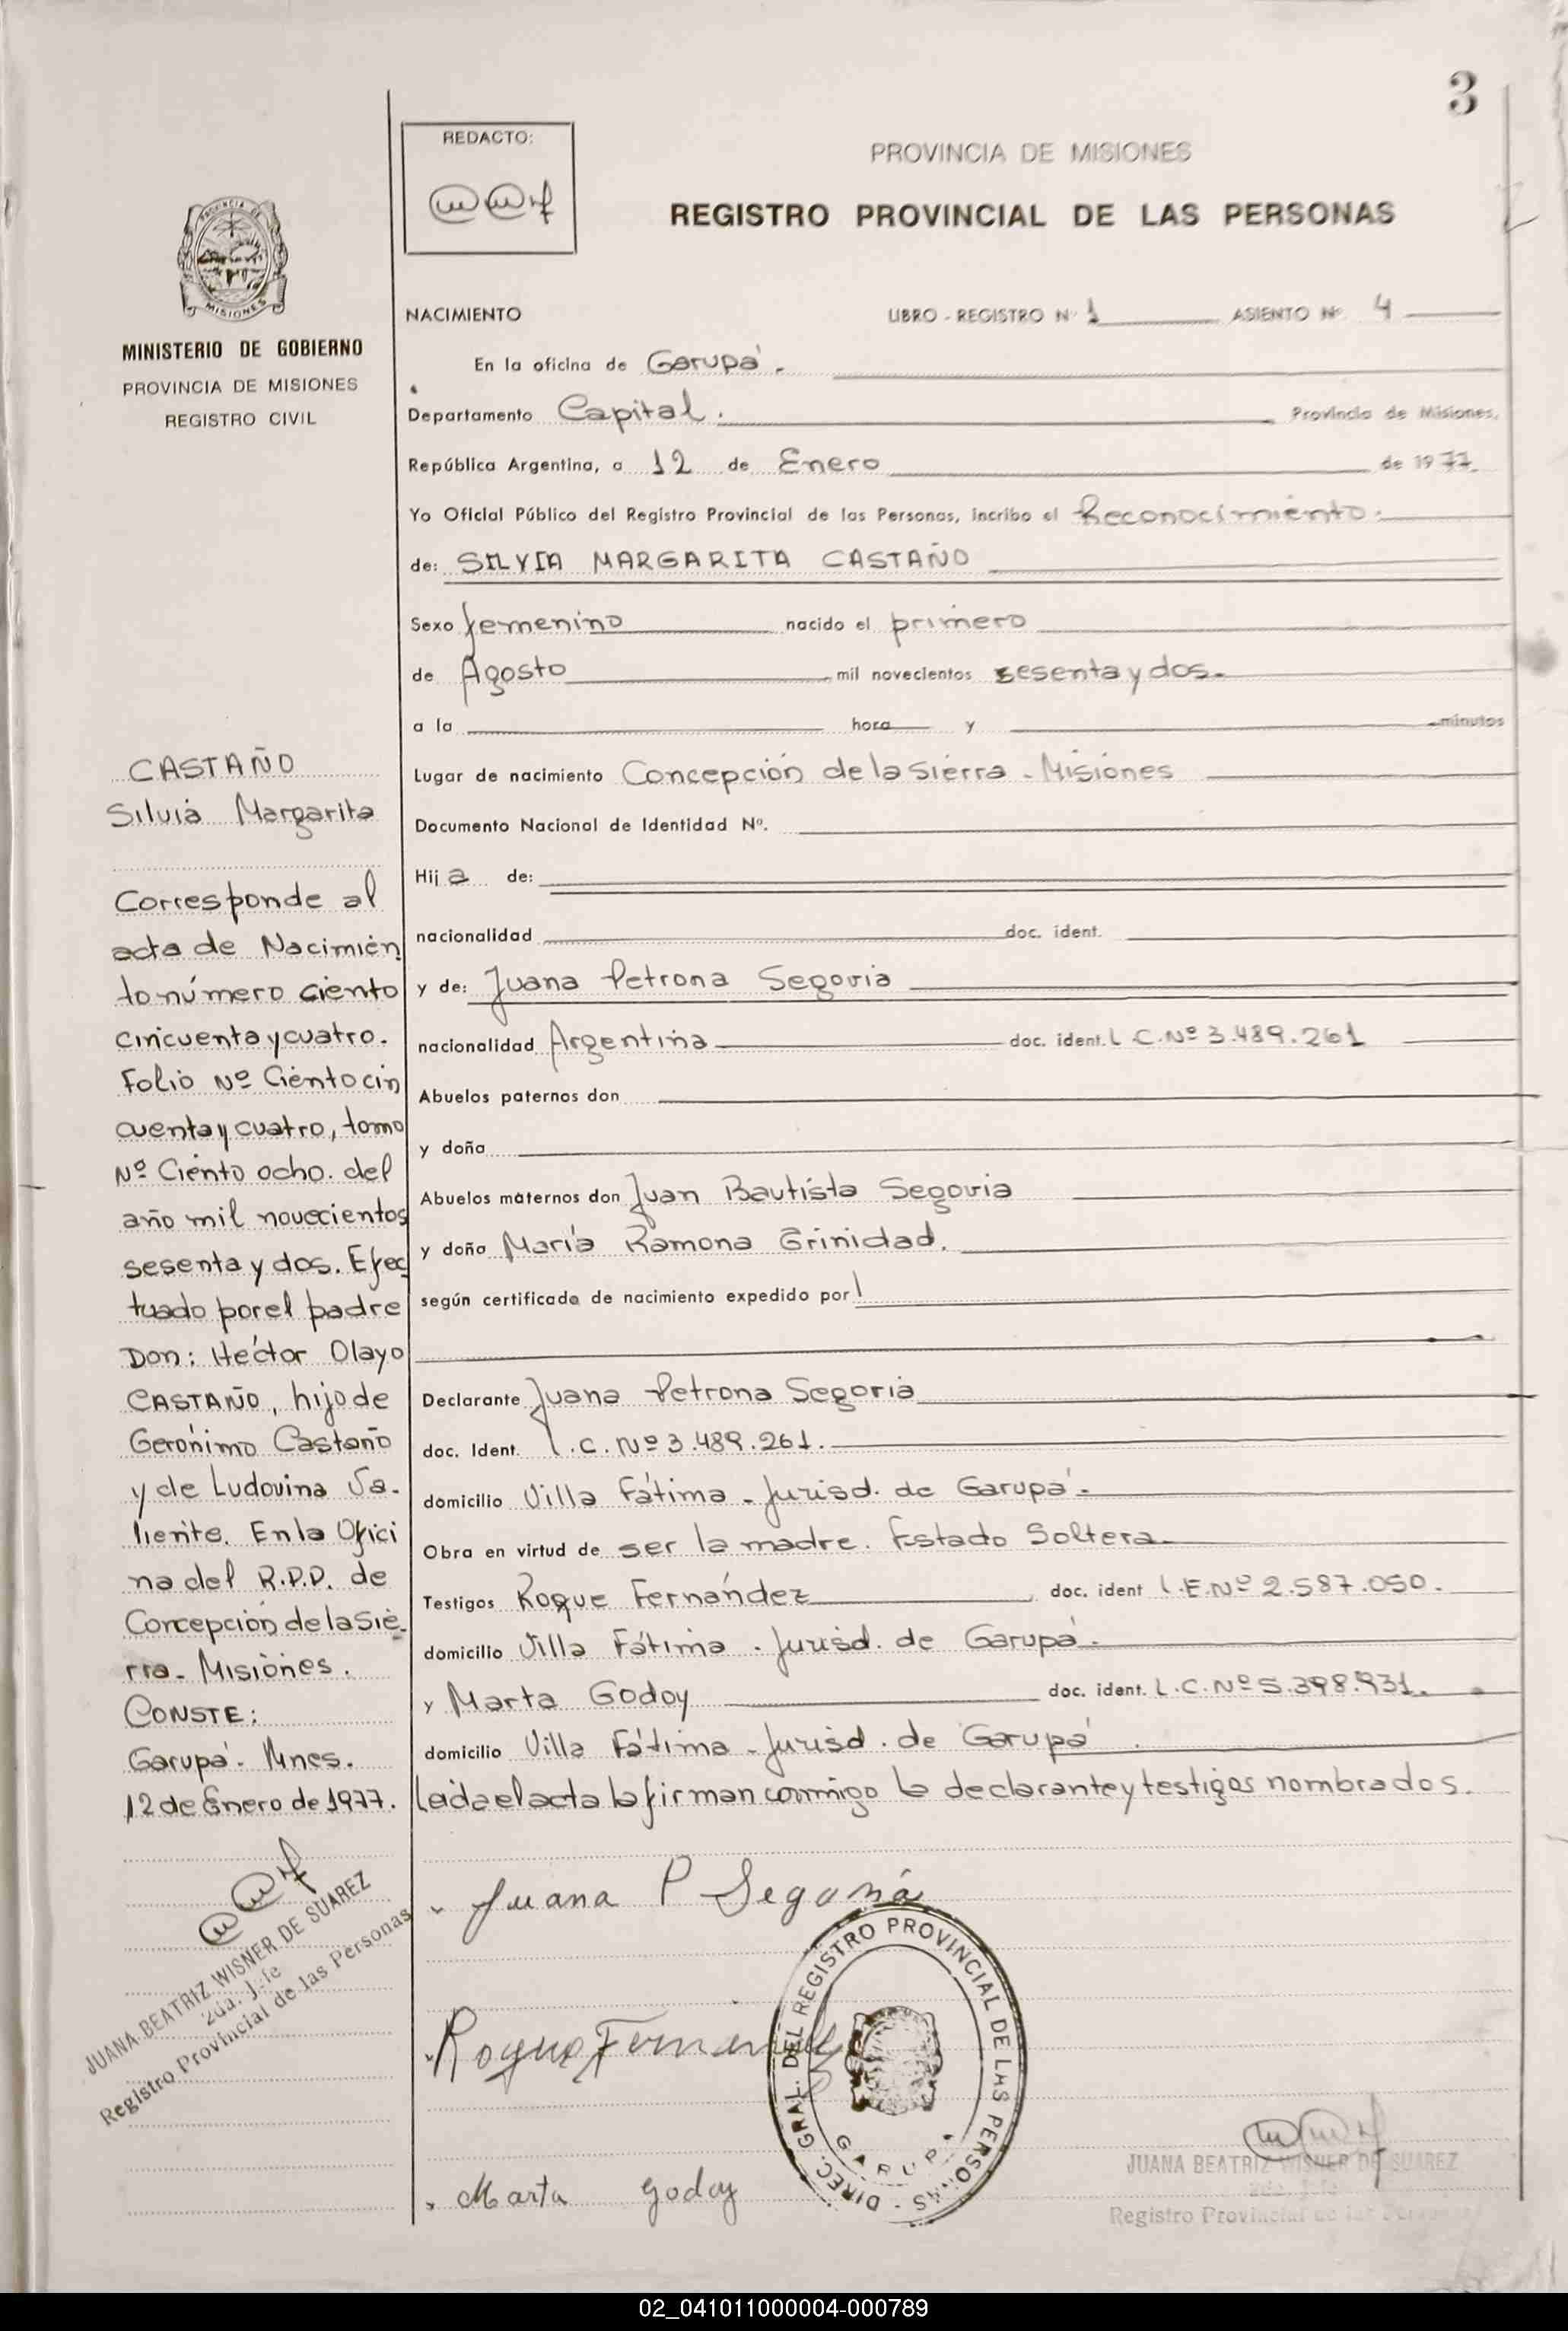 3
REDACTO:
PROVINCIA DE MISIONES
REGISTRO PROVINCIAL DE LAS PERSONAS
PROVINCIA DE
MISIONES
MINISTERIO DE GOBIERNO
PROVINCIA DE MISIONES
REGISTRO CIVIL
CASTAÑO
Silvia Margarita
Corresponde al
acta de Nacimien
to número ciento
cincuenta y cuatro.
Folio Nº Ciento cin
cuenta y cuatro, tomo
Nº Ciento ocho. del
año mil novecientos
sesenta y dos. Efec
tuado por el padre
Don: Héctor Olayo
CASTAÑO, hijo de
Gerónimo Castaño
y de Ludovina Va-
liente. En la Ofici
na del R.P.P. de
Concepción de la Sie-
rra - Misiones.
CONSTE:
Garupá. Mnes.
12 de Enero de 1977.
JUANA BEATRIZ WISNER DE SUAREZ
2da. Jefe
Registro Provincial de las Personas
NACIMIENTO LIBRO - REGISTRO Nº 1 ASIENTO Nº 4
En la oficina de Garupá.
Departamento Capital. Provincia de Misiones,
República Argentina, a 12 de Enero de 1977.
Yo Oficial Público del Registro Provincial de las Personas, incribo el Reconocimiento.
de: SILVIA MARGARITA CASTAÑO
Sexo femenino nacido el primero
de Agosto mil novecientos sesenta y dos.
a la hora y minutos
Lugar de nacimiento Concepción de la Sierra - Misiones
Documento Nacional de Identidad Nº.
Hija de:
nacionalidad doc. ident.
y de: Juana Petrona Segovia
nacionalidad Argentina doc. ident. L.C.Nº 3.489.261
Abuelos paternos don
y doña
Abuelos maternos don Juan Bautista Segovia
y doña María Ramona Grinidad.
según certificado de nacimiento expedido por
Declarante Juana Petrona Segovia
doc. Ident. L.C. Nº 3.489.261.
domicilio Villa Fátima - Jurisd. de Garupá.
Obra en virtud de ser la madre. Estado Soltera
Testigos Roque Fernández doc. ident L.E.Nº 2.587.050.
domicilio Villa Fátima - Jurisd. de Garupá.
y Marta Godoy doc. ident. L.C.Nº 5.398.931.
domicilio Villa Fátima - Jurisd. de Garupá.
Leida el acta la firman conmigo la declarante y testigos nombrados.
Juana P Segovia
Roque Fernandez
Marta Godoy
DIREC. GRAL. DEL REGISTRO PROVINCIAL DE LAS PERSONAS -
GARUPA
JUANA BEATRIZ WISNER DE SUAREZ
2da. Jefe
Registro Provincial de las Personas
02_041011000004-000789